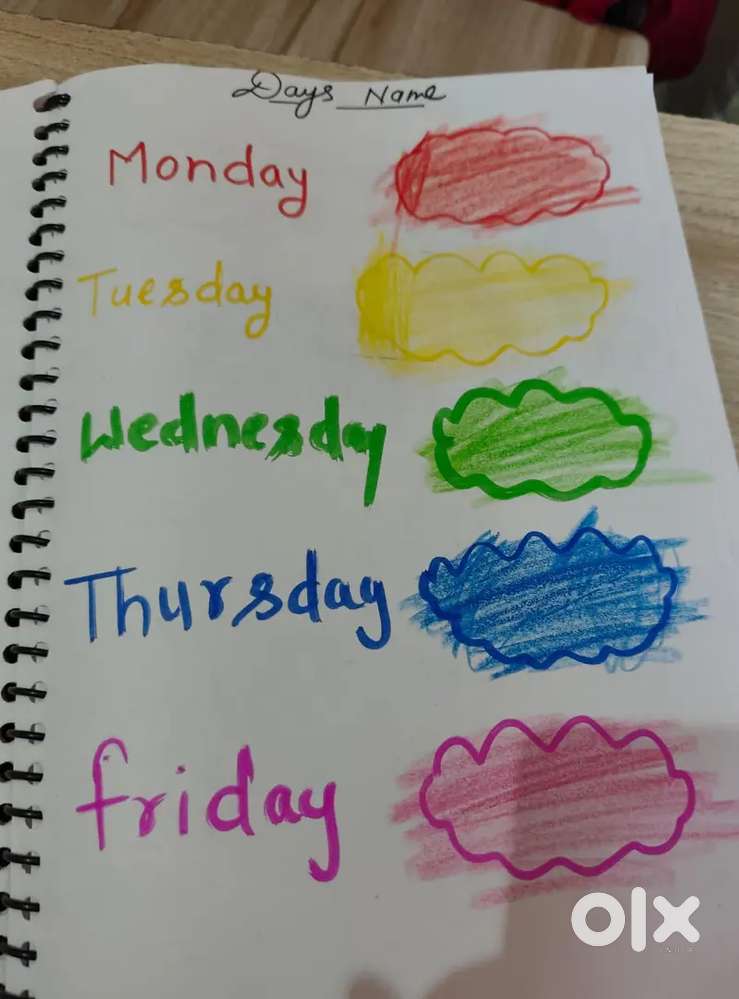 Days Name
Monday
Tuesday
Wednesday
Thursday
friday
olx
INDIA